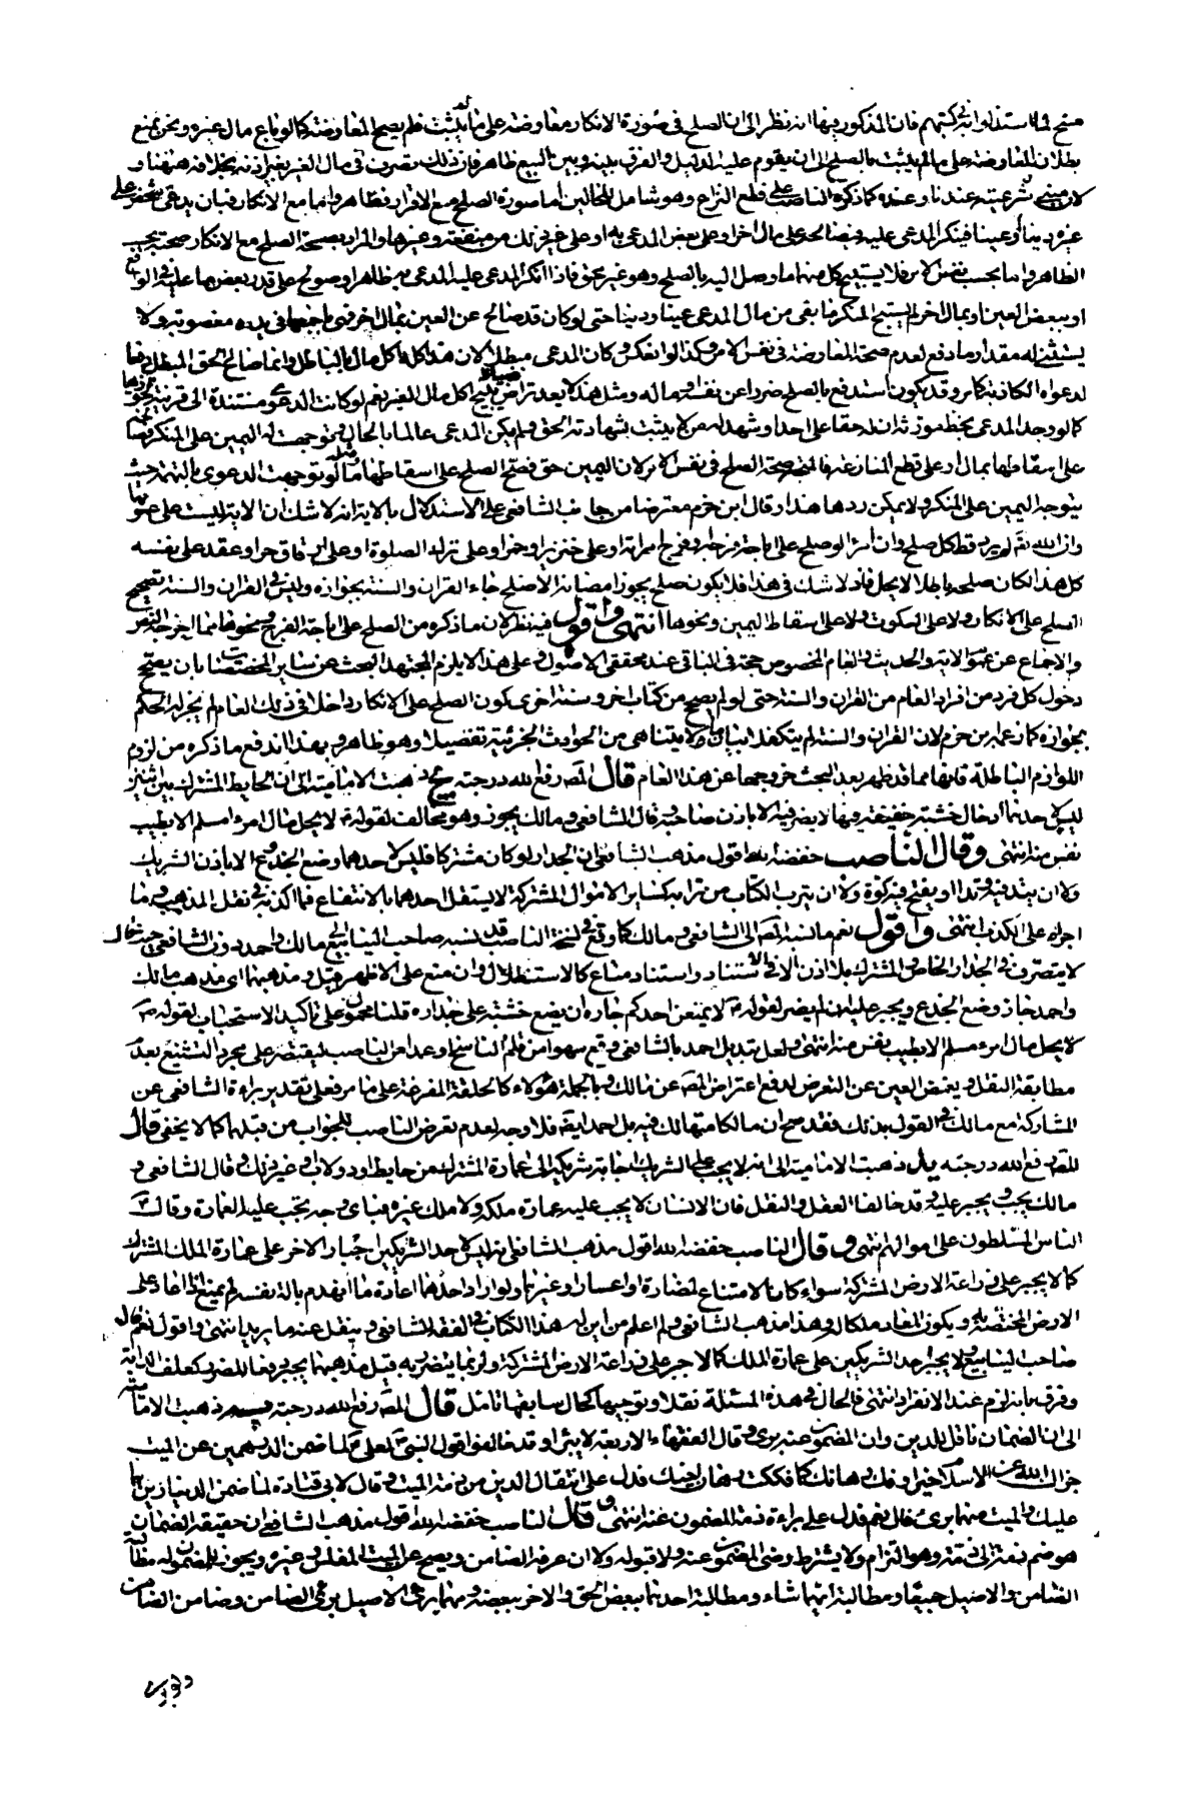 منح لما استدلوا به في كتبهم فان المذكور فيها انه نظر الى ان الصلح في صورة الانكار معاوضة على ما لم يثبت فلم يصح المعاوضة كما لو باع مال غيره ونحن نمنع
بطلان المعاوضة على ما لم يثبت بالصلح الى ان يقوم عليه الدليل والفرق بينه وبين البيع ظاهر فان ذلك تصرف في مال الغير بغير اذنه بخلافه هيهنا و
لان شرعيته عندنا وعنده كما ذكره الناصب على قطع النزاع وهو شامل للحالين اما صورة الصلح مع الاقرار فظاهر واما مع الانكار فبان يدعى شخص على
غيره دينا او عينا فينكر المدعى عليه فيصالحه على مال اخر او على بعض المدعى به او على غير ذلك من منفعة وغيرها والمراد بصحة الصلح مع الانكار صحته بحسب
الظاهر واما بحسب نفس الامر فلا يستبيح كل منهما ما وصل اليه بالصلح وهو غير محق فاذا انكر المدعى عليه المدعى به ظاهرا وصولح على قدر بعض ما عليه في الواقع
او ببعض العين او بمال اخر لم يستبح المنكر ما بقى من مال المدعى عينا ودينا حتى لو كان قد صالح عن العين بمال اخر فهى باجمعها في يده مغصوبة ولا
يستثنى له مقدار ما دفع لعدم صحة المعاوضة في نفس الامر وكذا لو انعكس وكان المدعى مبطلا لان هذا كله اكل مال بالباطل وانما صالح المحق المبطل دفعا
لدعواه الكاذبة وقد يكون استدفع بالصلح ضررا عن نفسه او ماله ومثل هذا لا يعد تراض يبيح اكل مال الغير نعم لو كانت الدعوى مستندة الى قرينة
كما لو وجد المدعى بخط مورثه ان له حقا على احد او شهد له من لا يثبت بشهادته الحق ولم يكن المدعى عالما بالحال وتوجهت له اليمين على المنكر فصالحه
على اسقاطها بمال او على قطع المنازعة فالمتجه صحة الصلح في نفس الامر لان اليمين حق فصح الصلح على اسقاطها ومثله ما لو توجهت الدعوى بالتهمة حيث
يتوجه اليمين على المنكر ولا يمكن ردها هذا وقال ابن حزم معترضا من جانب الشافعي على الاستدلال بالاية انه لا شك ان الاية ليست على عمومها
وان الله تع لم يرد قط كل صلح وان امرءا لو صلح على اباحة فرجه او فرج امراته او على خنزير او خمر او على ترك الصلوة او على ارقاق حر او عقد على نفسه
كل هذا لكان صلحه باطلا لا يحل فاذ لا شك في هذا فلا يكون صلح يجوز امضائه الا صلح جاء القران والسنة بجوازه وليس في القران والسنة تصحيح
الصلح على الانكار ولا على السكوت ولا على اسقاط اليمين ونحوها انتهى واقول فيه نظر لان ما ذكره من الصلح على اباحة الفرج ونحوها مما اخرجه النص
والاجماع عن عموم الاية والحديث والعام المخصوص حجة في الباقي عند محققي الاصول وعلى هذا لا يلزم المجتهد البحث عن ساير المخصصات بان يصحح
دخول كل فرد من افراد العام من القران والسنة حتى لو لم يصح من كتاب اخر وسنة اخرى كون الصلح على الانكار داخلا في ذلك العام لم يجز له الحكم
بجوازه كما زعمه ابن حزم لان القران والسنة لم يتكفلا بيان ما لا يتناهى من الحوادث الجزئية تفصيلا وهو ظاهر وبهذا اندفع ما ذكره من لزوم
اللوازم الباطلة فانها مما قد ظهر بعد البحث خروجها عن هذا العام قال المص رفع الله درجته ذهبت الامامية الى ان الحايط المشترك بين اثنين
ليس لاحدهما ادخال خشبة خفيفة فيها لا يضر فيه الا باذن صاحبه وقال الشافعي ومالك يجوز وهو مخالف لقوله لا يحل مال امرء مسلم الا بطيب
نفس منه انتهى وقال الناصب خفضه الله اقول مذهب الشافعي ان الجدار لو كان مشتركا فليس لاحدهما وضع الجذوع الا باذن الشريك
ولا ان يتد فيه وتدا او يفتح فيه كوة ولا ان يترب الكتاب من ترابه كساير الاموال المشتركة لا يستقل احدهما بالانتفاع فما اكذبه في نقل المذهب وما
اجراه على الكذب انتهى واقول نعم ما نسبه المص الى الشافعي ومالك كما وقع في نسخة الناصب قد نسبه صاحب الينابيع الى مالك واحمد دون الشافعي حيث قال
لا يتصرف في الجدار الخاص والمشترك بلا اذن الا في الاستناد واسناد متاع كالاستظلال وان منع على الاظهر وقيل ومذهبهما اى مذهب مالك
واحمد جاز وضع الجذع ويجبر عليه ان لم يضر لقوله لا يمنعن احدكم جاره ان يضع خشبة على جداره قلنا محمول على تاكيد الاستحباب لقوله
لا يحل مال امرء مسلم الا بطيب نفس منه انتهى ولعل تبديل احمد بالشافعي وقع سهوا من قلم الناسخ او عمدا من الناصب ليقتصر على مجرد التشنيع بعدم
مطابقة النقل ويغمض العين عن التعرض لدفع اعتراض المص عن مالك وبالجملة هؤلاء كالحلقة المفرغة على ما مر فعلى تقدير براءة الشافعي عن
المشاركة مع مالك في القول بذلك فقد صح ان مالكا متهالك فيه بل احمد ايضا فلا وجه لعدم تعرض الناصب للجواب من قبلهما كما لا يخفى قال
المص رفع الله درجته ذهبت الامامية الى انه لا يجب على الشريك اجابة شريكه الى عمارة المشترك من حايط او دولاب وغير ذلك وقال الشافعي و
مالك يجب ويجبر عليه وقد خالفا العقل والنقل فان الانسان لا يجب عليه عمارة ملكه ولا ملك غيره فباى وجه يجب عليه العمارة وقال
الناس مسلطون على اموالهم انتهى وقال الناصب خفضه الله اقول مذهب الشافعي انه ليس لاحد الشريكين اجبار الاخر على عمارة الملك المشترك
كما لا يجبر على زراعة الارض المشتركة سواء كان الامتناع لمضارة او اعسار او غيرها ولو اراد احدهما اعادة ما انهدم بالة نفسه لم يمنع اذا اعاد على
الارض المختصة به ويكون المعاد ملكا له وهذا مذهب الشافعي ولم اعلم من اين له هذا الكتاب في الفقه للشافعي وينقل عنه ما يريد انتهى واقول نعم قال
صاحب الينابيع ولا يجبر احد الشريكين على عمارة الملك كما لا جبر على زراعة الارض المشتركة ولو بما يتضرر به وقيل مذهبهما يجبر دفعا للضرر كعلف الدابة
وفرق بانه لزم عند الانفراد انتهى فالحال في هذه المسئلة نقلا وتوجيها كحال سابقها تامل قال المص رفع الله درجته ذهبت الامامية
الى ان الضمان ناقل للدين وان المضمون عنه برى وقال الفقهاء الاربعة لا يبرا وقد خالفوا قول النبي لعلي لما ضمن الدرهمين عن الميت
جزاك الله عن الاسلام خيرا وفك رهانك كما فككت رهان اخيك فدل على انتقال الدين من ذمة الميت وقال لابي قتادة لما ضمن الدينارين هما
عليك والميت منهما برئ قال نعم فدل على براءة ذمة المضمون عنه انتهى وقال الناصب خفضه الله اقول مذهب الشافعي ان حقيقة الضمان
هو ضم ذمة الى ذمة وهو التزام ولا يشترط رضى المضمون عنه ولا قبوله ولا ان عرفه الضامن ويصح عن الميت المفلس وغيره ويجوز للمضمون له مطالبة
الضامن والاصيل جميعا ومطالبة ايهما شاء ومطالبة احدهما ببعض الحق والاخر ببعضه ومهما برئ الاصيل برئ الضامن وضامن الضامن